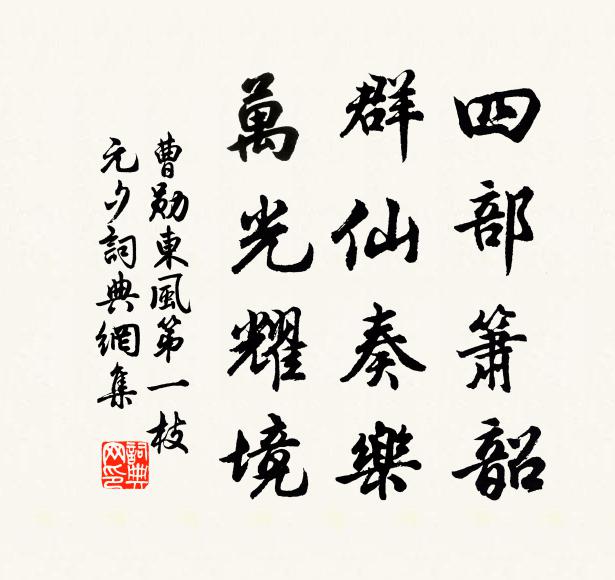 四部簫韶
群仙奏樂
萬光耀境
曹勛東風第一枝
元夕詞典網集
詞典
网印